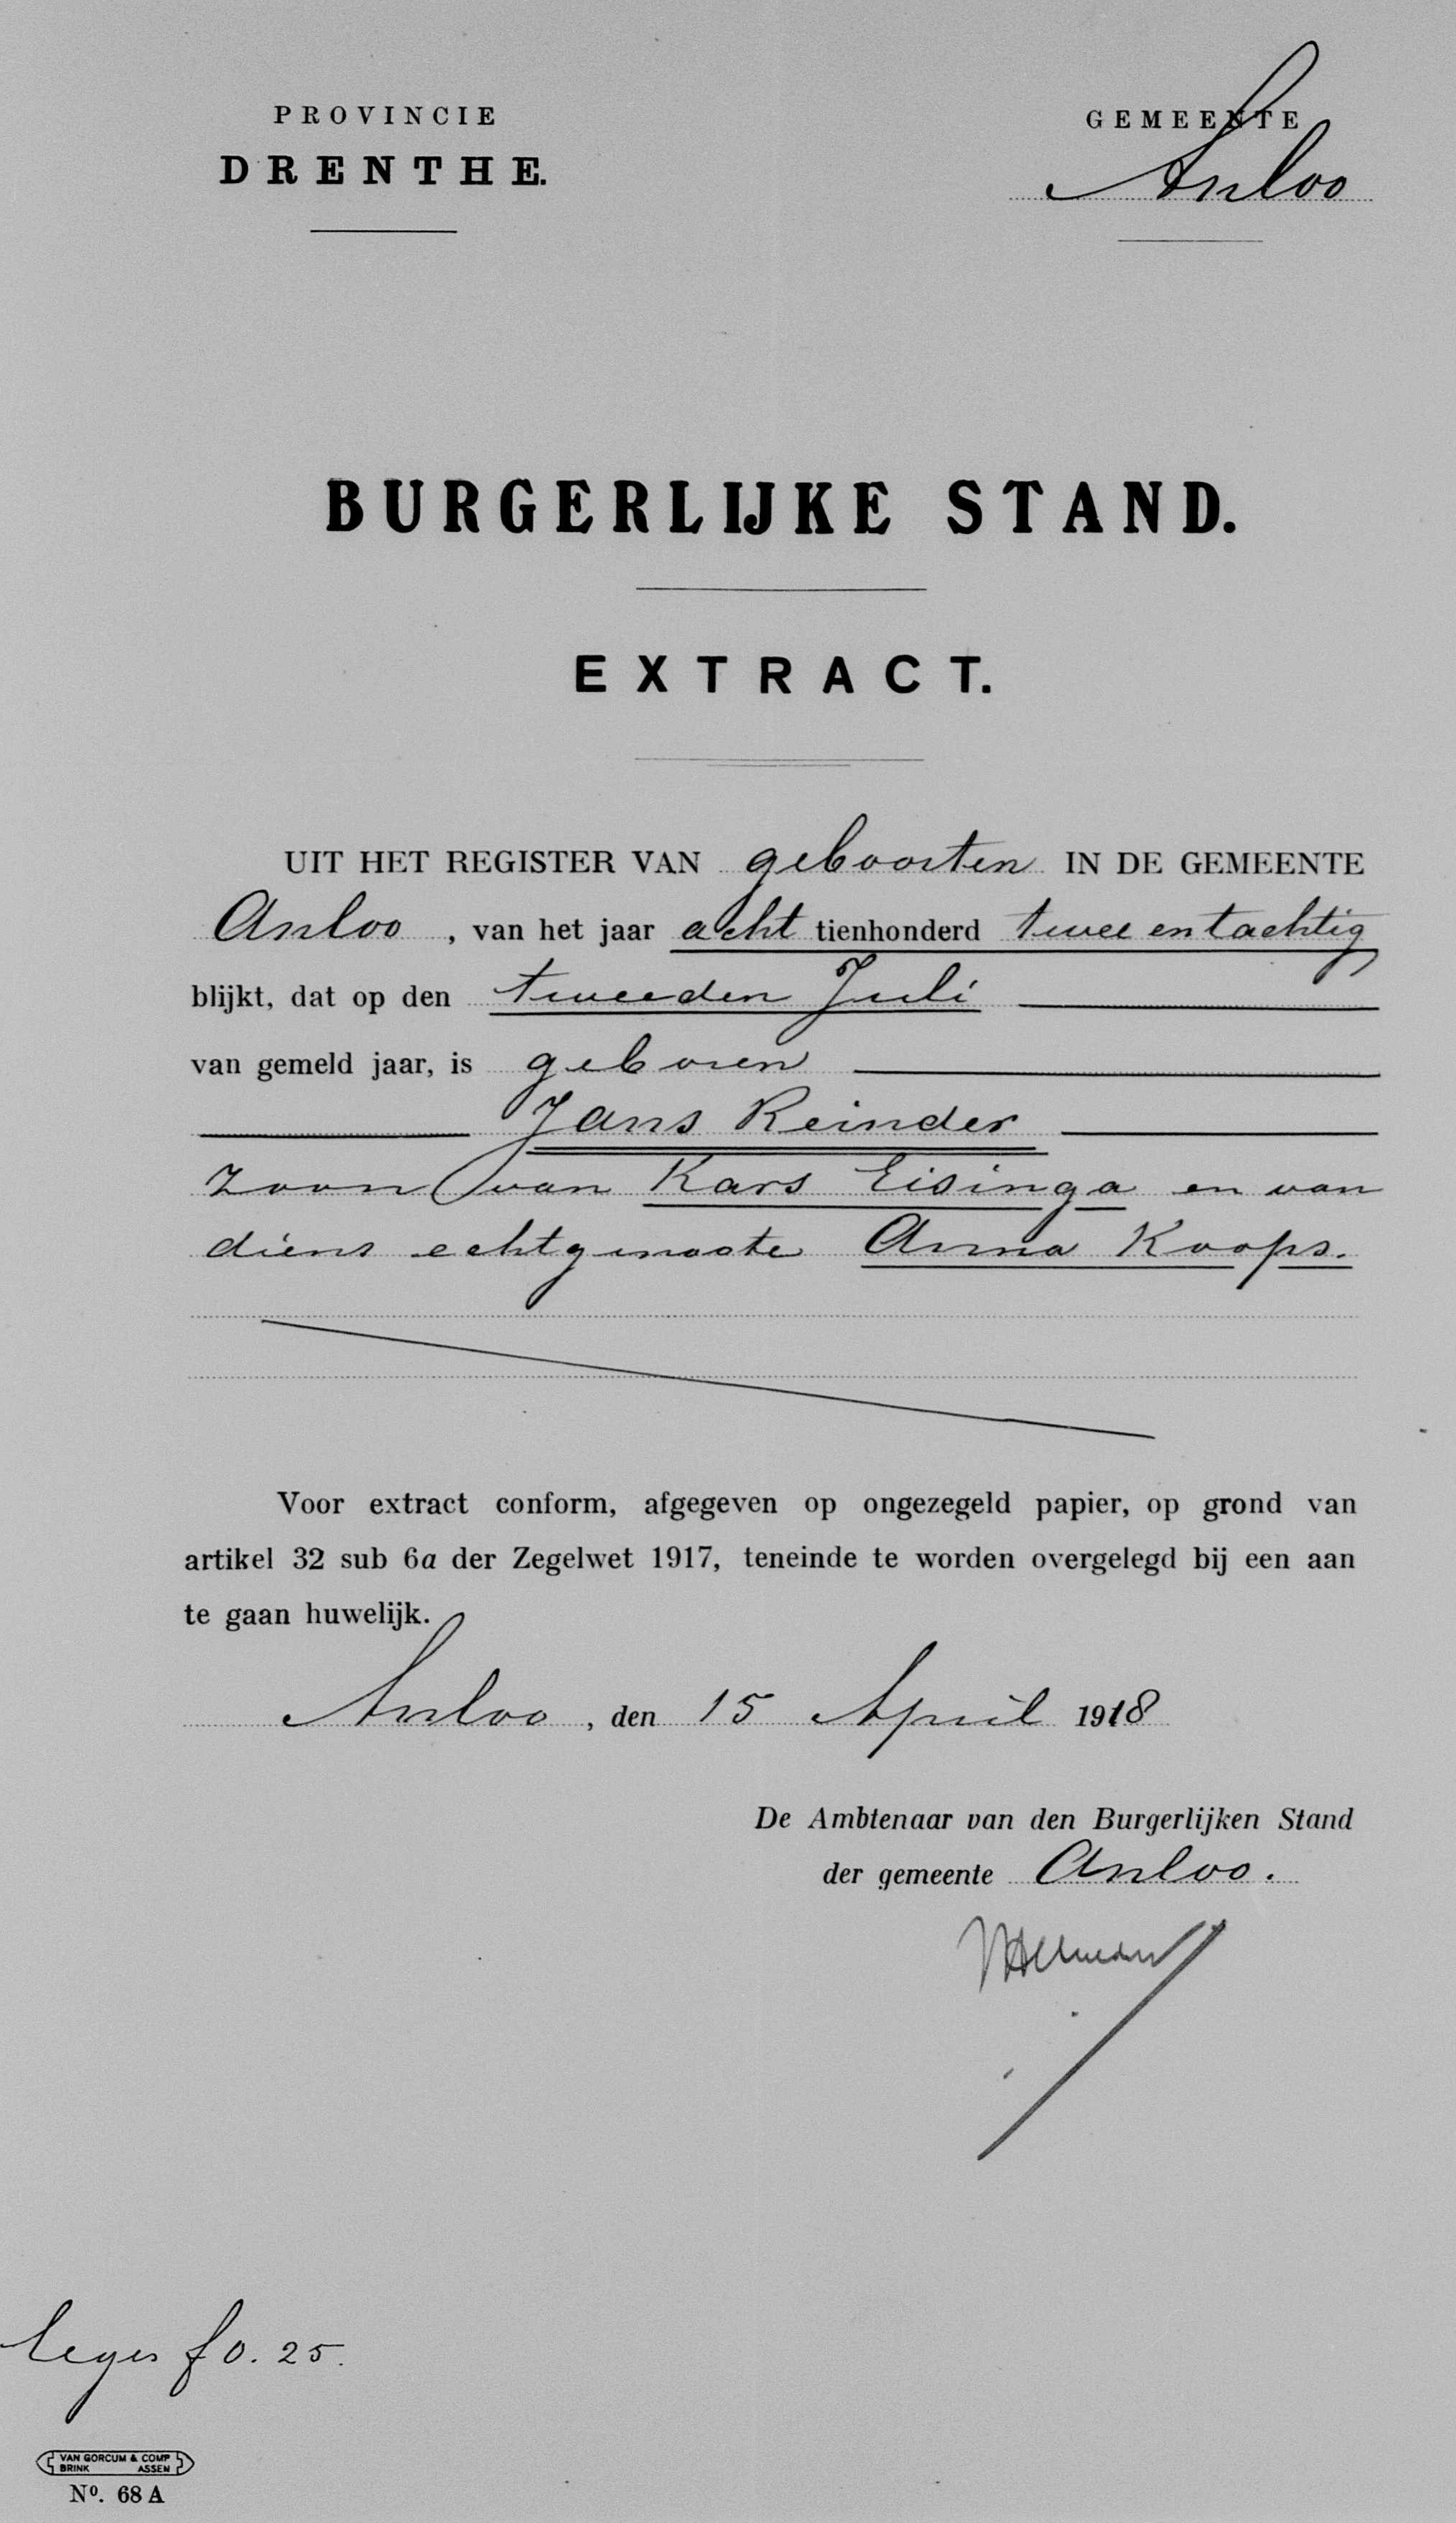 PROVINCIE
DRENTHE.
GEMEENTE
Anloo
BURGERLIJKE STAND.
EXTRACT.
UIT HET REGISTER VAN geboorten IN DE GEMEENTE
Anloo, van het jaar acht tienhonderd twee en tachtig
blijkt, dat op den tweeden Juli
van gemeld jaar, is geboren
Jans Reinder
zoon van Kars Eisinga en van
diens echtgenoote Anna Koops.
Voor extract conform, afgegeven op ongezegeld papier, op grond van
artikel 32 sub 6a der Zegelwet 1917, teneinde te worden overgelegd bij een aan
te gaan huwelijk.
Anloo, den 15 April 1918
De Ambtenaar van den Burgerlijken Stand
der gemeente Anloo.
leges f 0.25.
VAN GORCUM & COMP
BRINK ASSEN
No. 68 A